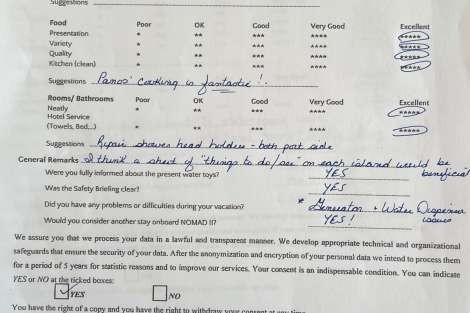 Suggestions
Food Poor OK Good Very Good Excellent
Presentation * ** *** **** *****
Variety * ** *** **** *****
Quality * ** *** **** *****
Kitchen (clean) * ** *** **** *****
Suggestions Panos' Cooking is fantastic!.
Rooms/ Bathrooms Poor OK Good Very Good Excellent
Neatly * ** *** **** *****
Hotel Service
(Towels, Bed,..) * ** *** **** *****
Suggestions Repair shower head holders - both port side
General Remarks I think a sheet of "things to do/see" on each island would be beneficial
Were you fully informed about the present water toys? YES
Was the Safety Briefing clear? YES
Did you have any problems or difficulties during your vacation? * Generator + Water Dispenser issues
Would you consider another stay onboard NOMAD II? YES!
We assure you that we process your data in a lawful and transparent manner. We develop appropriate technical and organizational
safeguards that ensure the security of your data. After the anonymization and encryption of your personal data we intend to process them
for a period of 5 years for statistic reasons and to improve our services. Your consent is an indispensable condition. You can indicate
YES or NO at the ticked boxes:
YES NO
You have the right of a copy and you have the right to withdraw your consent at any time